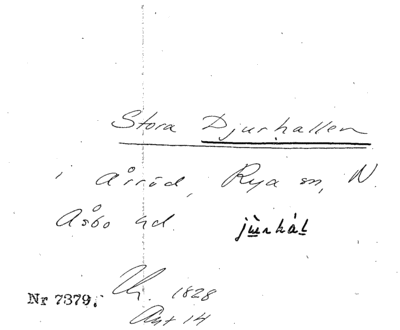 Stora Djurhallen
i Årröd, Rya sn, N.
Åsbo hd.
Nr 7379.
1828
Akt 14